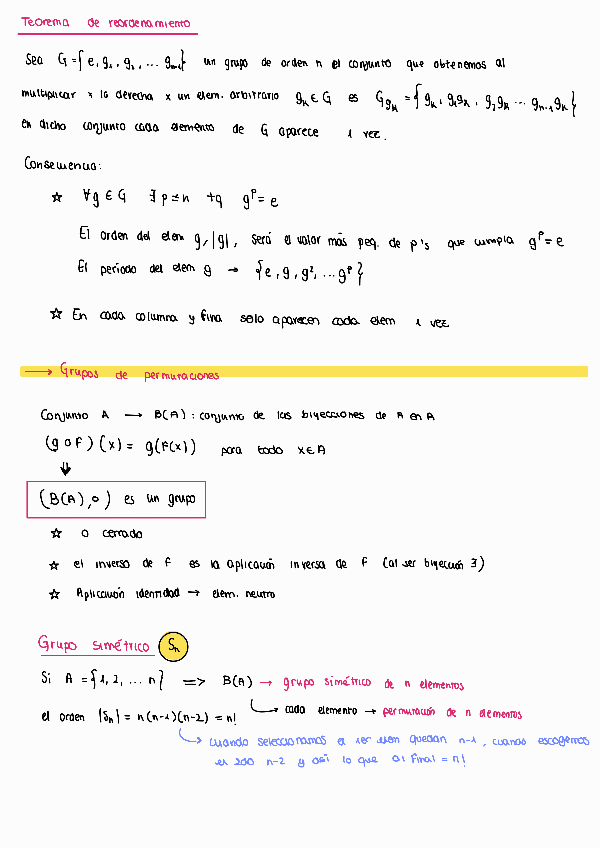 Teorema de reordenamiento
Sea G={e, g₁, g₂, ... gₙ₋₁} un grupo de orden n el conjunto que obtenemos al
multiplicar x la derecha x un elem. arbitrario gₖ ∈ G es G gₖ = {gₖ, g₁gₖ, g₂gₖ ... gₙ₋₁gₖ}
en dicho conjunto cada elemento de G aparece 1 vez.
Consecuencia:
☆ ∀g ∈ G ∃ p ≤ n tq gᵖ = e
El orden del elem g, |g|, será el valor más peq. de p's que cumpla gᵖ = e
El período del elem g → {e, g, g², ... gᵖ}
☆ En cada columna y fina solo aparecen cada elem 1 vez
→ Grupos de permutaciones
Conjunto A → B(A) : conjunto de las biyecciones de A en A
(g o f)(x) = g(f(x)) para todo x ∈ A
⇓
(B(A), o) es un grupo
☆ o cerrado
☆ el inverso de f es la aplicación inversa de f (al ser biyección ∃)
☆ Aplicación identidad → elem. neutro
Grupo simétrico Sₙ
Si A = {1, 2, ... n} => B(A) → grupo simétrico de n elementos
el orden |Sₙ| = n(n-1)(n-2) = n! cada elemento → permutación de n elementos
cuando seleccionamos el 1er elem quedan n-1, cuando escogemos
el 2do n-2 y así lo que al final = n!